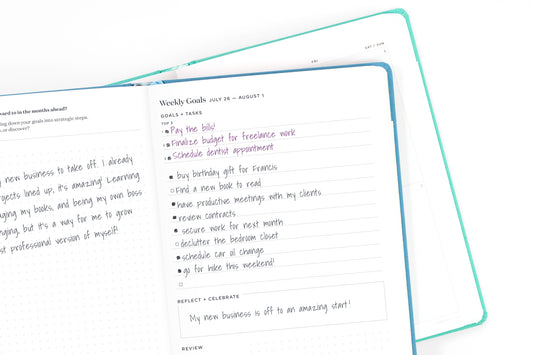 ward to in the months ahead?
ing down your goals into strategic steps.
or discover?
new business to take off. I already
ojects lined up, it's amazing! Learning
aging my books, and being my own boss
nging, but it's a way for me to grow
st professional version of myself!
Weekly Goals JULY 26 — AUGUST 1
GOALS + TASKS
TOP 3
1 Pay the bills!
2 Finalize budget for freelance work
3 Schedule dentist appointment
buy birthday gift for Francis
Find a new book to read
have productive meetings with my clients
review contracts
secure work for next month
declutter the bedroom closet
schedule car oil change
go for hike this weekend!
REFLECT + CELEBRATE
My new business is off to an amazing start!
REVIEW
FRI
SAT / SUN